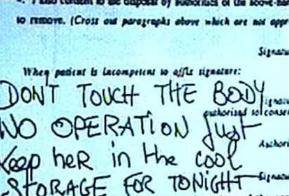 4. I also consent to the disposal by authorities of the above-
to remove. (Cross out paragraphs above which are not appr
Signatu
When patient is incompetent to affix signature:
DON'T TOUCH THE BODY
authorised to consen
NO OPERATION Just
Authori
Keep heR in the cool
Signatu
STORAGE FOR TONIGHT